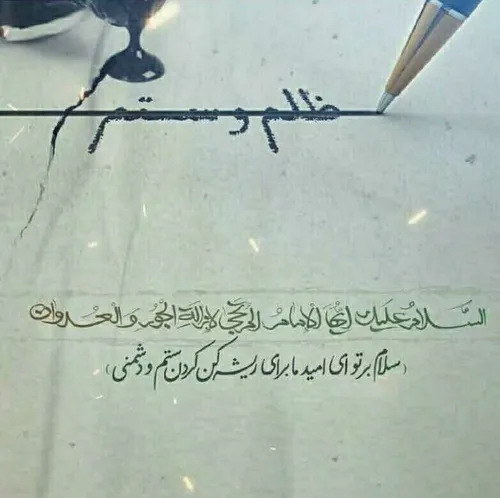 ظلم و ستم
السَّلامُ عَلَيْكَ اَيُّهَا الاِمامُ المُرتَجىٰ لاِزالَةِ الجُورِ وَالعُدْوانِ
(سلام بر تو ای امید ما برای ریشه کن کردن ستم و دشمنی)